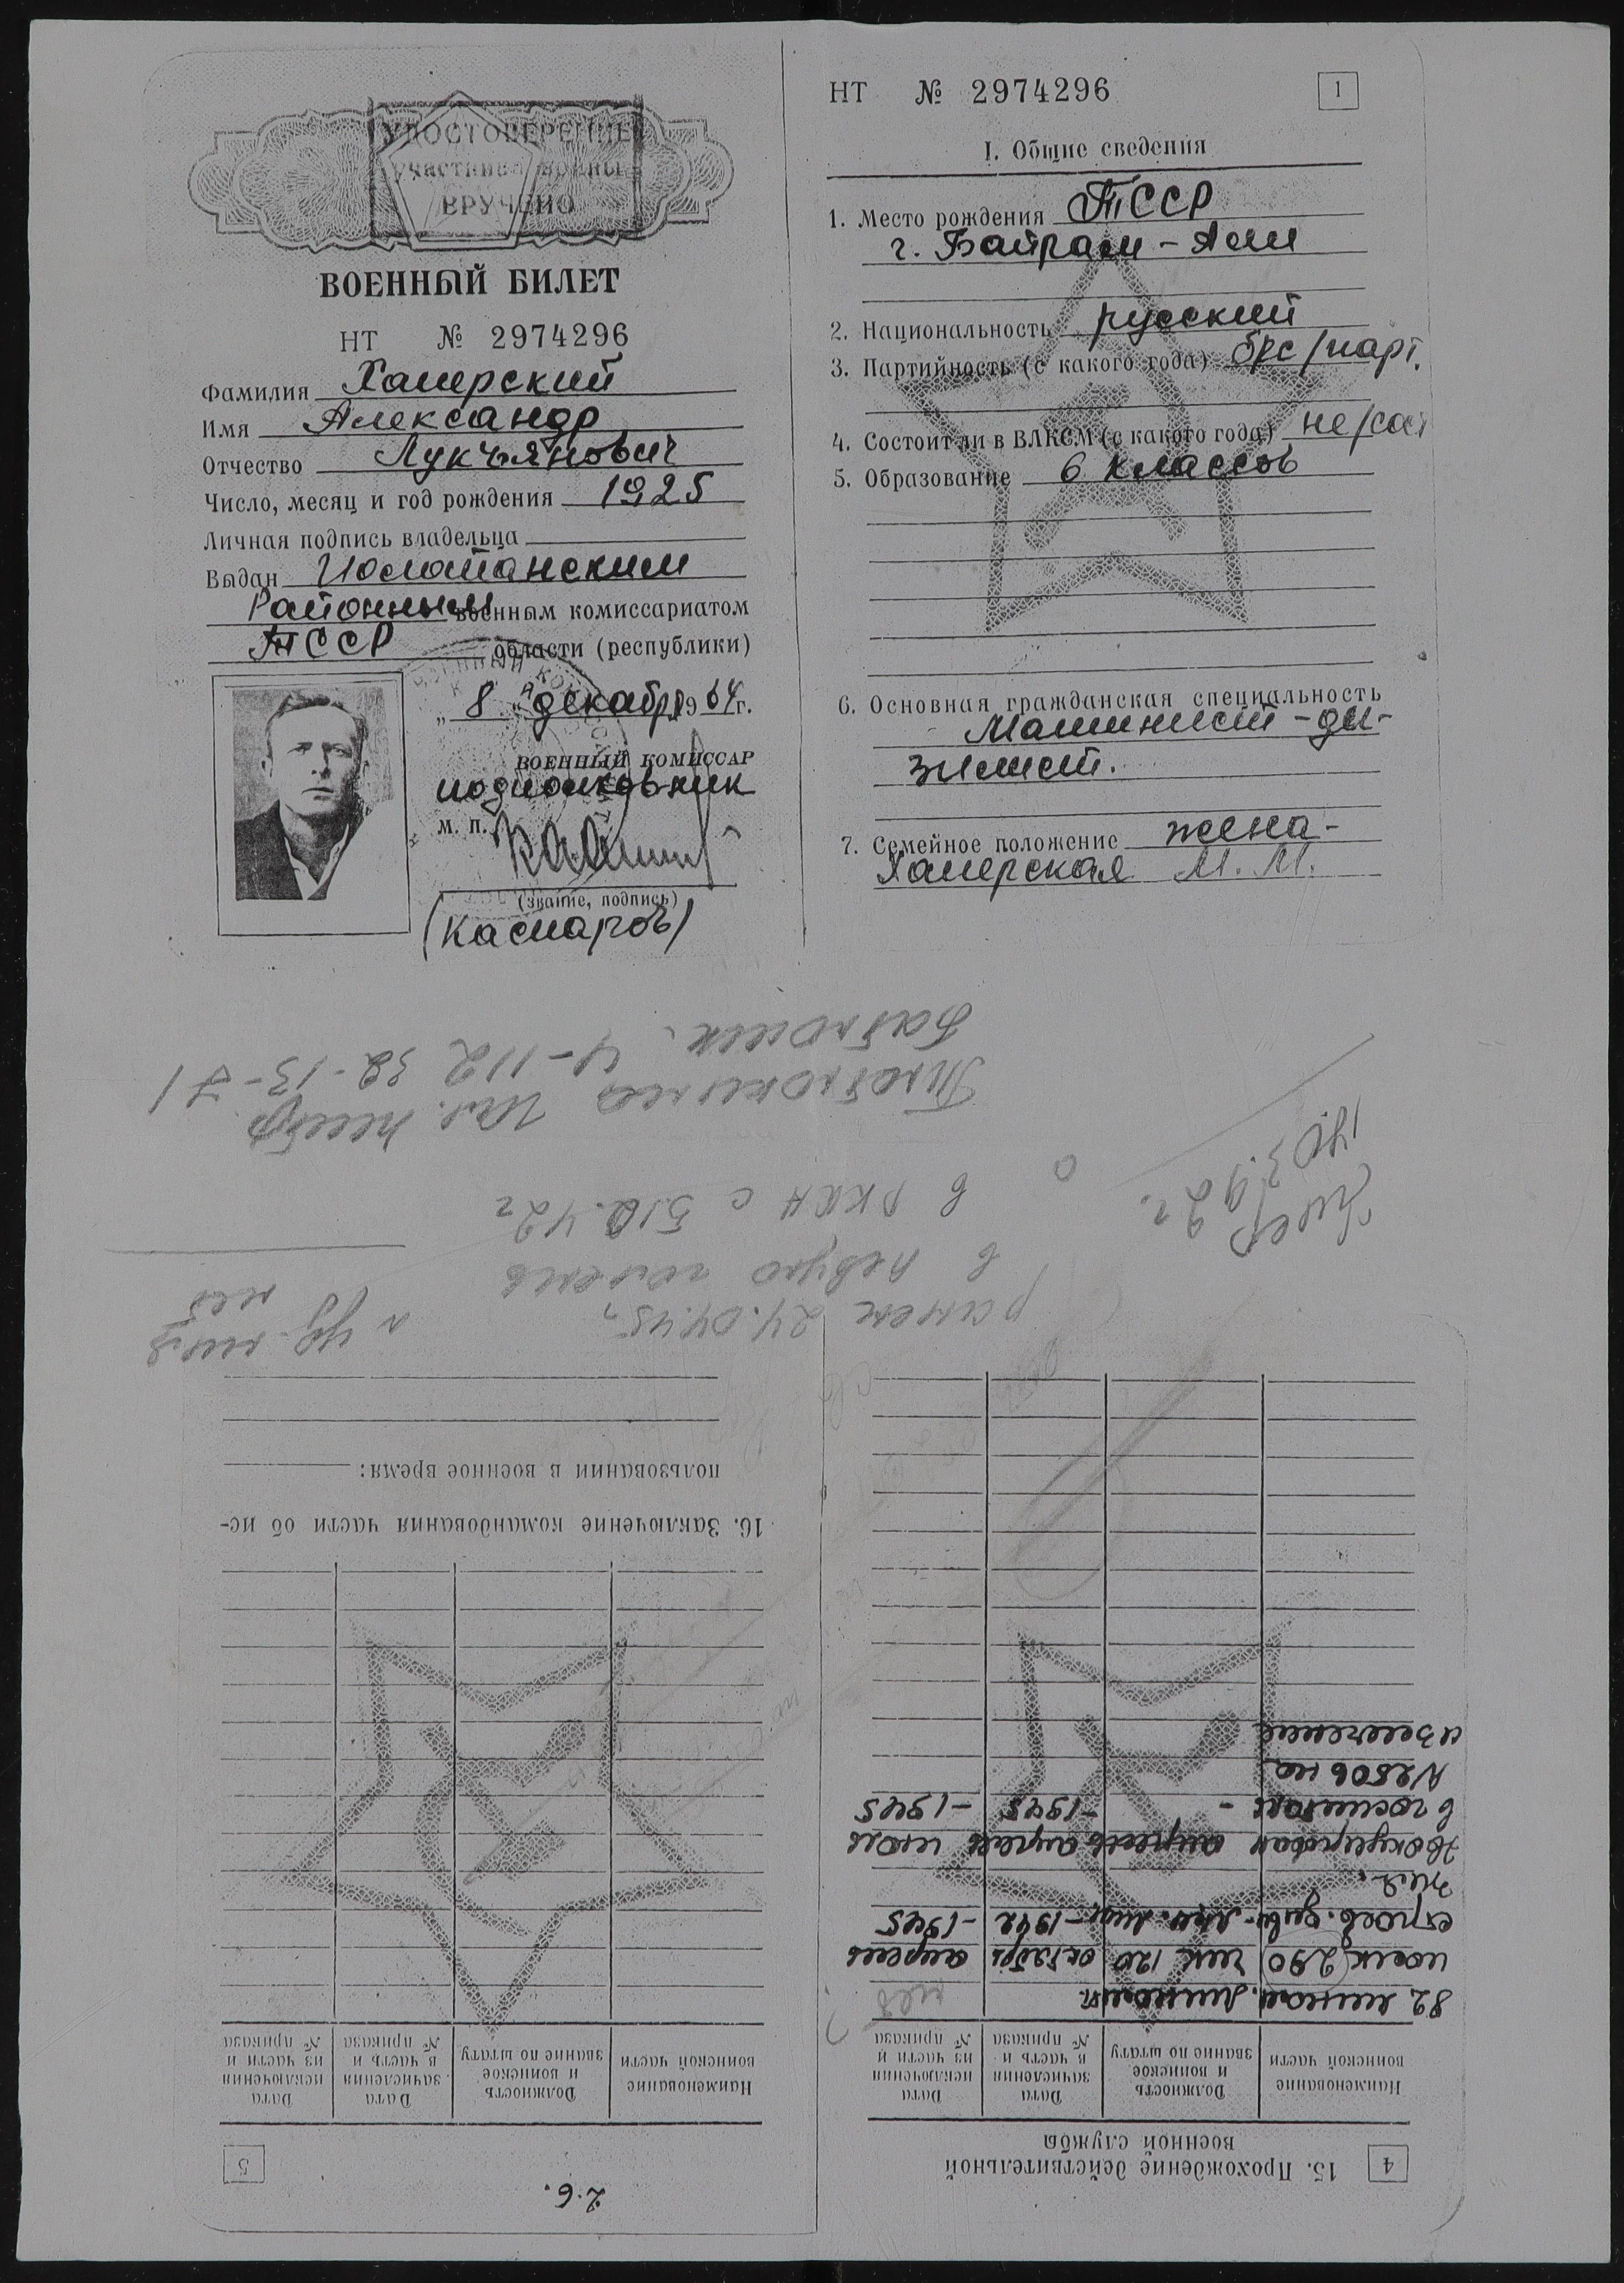 УДОСТОВЕРЕНИЕ
участника войны
ВРУЧЕНО
ВОЕННЫЙ БИЛЕТ
НТ № 2974296
Фамилия Хамерский
Имя Александр
Отчество Лукъянович
Число, месяц и год рождения 1925
Личная подпись владельца
Выдан Иолотанским
Районным военным комиссариатом
ТССР области (республики)
„8" декабря 1964 г.
ВОЕННЫЙ КОМИССАР
подполковник
М. П.
(звание, подпись)
(Каспаров)
НТ № 2974296
1
I. Общие сведения
1. Место рождения ТССР
г. Байрам-Али
2. Национальность русский
3. Партийность (с какого года) бес/парт.
4. Состоит ли в ВЛКСМ (с какого года) не/сост
5. Образование 6 классов
6. Основная гражданская специальность
Машинист-ди-
зилист.
7. Семейное положение жена-
Хамерская М. М.
4-112 32-13-71
в РККА с 5.10.42г
ранен 24.04.45г
в левую голень
4
15. Прохождение действительной
военной службы
Наименование воинской части
Должность и воинское звание по штату
Дата зачисления в часть и № приказа
Дата исключения из части и № приказа
82 мином. Миномет. нет
полк (290 мм 120 октябрь апрель
стрелк. див. -1942 -1945
Эвакуирован апрель апрель июль
в госпиталь - -1945 -1945
N2806 на
излечение
2.6.
5
Наименование воинской части
Должность и воинское звание по штату
Дата зачисления в часть и № приказа
Дата исключения из части и № приказа
16. Заключение командования части об ис-
пользовании в военное время: